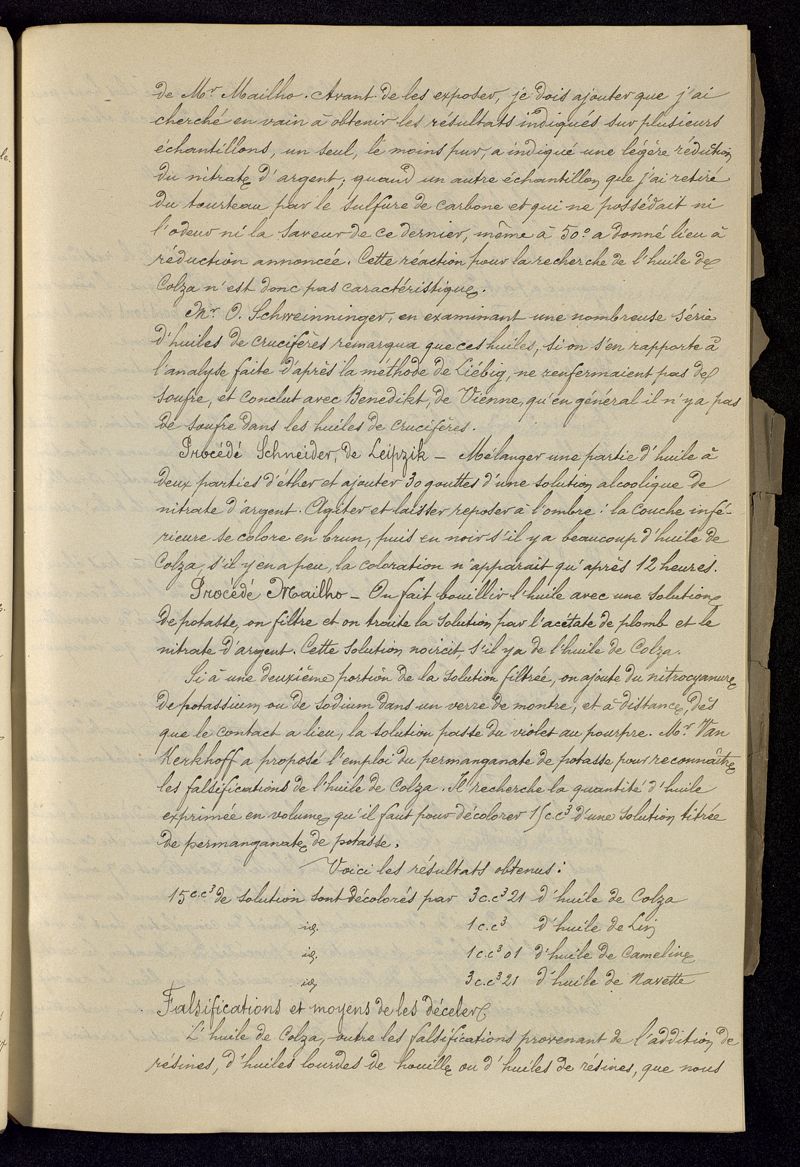 de Mr Mailho. Avant de les exposer, je dois ajouter que j'ai
cherché en vain à obtenir les résultats indiqués sur plusieurs
échantillons, un seul, le moins pur, a indiqué une légère réduction
du nitrate d'argent; quand un autre échantillon que j'ai retiré
du tourteau par le sulfure de carbone et qui ne possédait ni
l'odeur ni la saveur de ce dernier, même à 50° a donné lieu à
réduction annoncée. Cette réaction pour la recherche de l'huile de
Colza n'est donc pas caractéristique.
Mr. O. Schweinninger, en examinant une nombreuse série
d'huiles de crucifères remarqua que ces huiles, si on s'en rapporte à
l'analyse faite d'après la méthode de Liébig, ne renfermaient pas de
soufre, et conclut avec Benedikt, de Vienne, qu'en général il n'y a pas
de soufre dans les huiles de crucifères.
Procédé Schneider, de Leipzik – Mélanger une partie d'huile à
deux parties d'éther et ajouter 30 gouttes d'une solution alcoolique de
nitrate d'argent. Agiter et laisser reposer à l'ombre: la couche infé-
rieure se colore en brun, puis en noir s'il y a beaucoup d'huile de
Colza, s'il y en a peu, la coloration n'apparait qu'après 12 heures.
Procédé Mailho – On fait bouillir l'huile avec une solution
de potasse, on filtre et on traite la solution par l'acétate de plomb et le
nitrate d'argent. Cette solution noircit s'il y a de l'huile de Colza.
Si à une deuxième portion de la solution filtrée, on ajoute du nitrocyanure
de potassium ou de sodium dans un verre de montre, et à distance, dès
que le contact a lieu, la solution passe du violet au pourpre. Mr. Van
Kerkhoff a proposé l'emploi du permanganate de potasse pour reconnaître
les falsifications de l'huile de Colza. Il recherche la quantité d'huile
exprimée en volume qu'il faut pour décolorer 15 c.c3 d'une solution titrée
de permanganate de potasse.
Voici les résultats obtenus:
15 c.c3 de solution sont décolorés par 3 c.c3 21 d'huile de Colza
id. 1 c.c3 d'huile de Lin
id. 1 c.c3 01 d'huile de Cameline
id. 3 c.c3 21 d'huile de Navette
Falsifications et moyens de les déceler
L'huile de Colza, outre les falsifications provenant de l'addition de
résines, d'huiles lourdes de houille ou d'huiles de résines, que nous